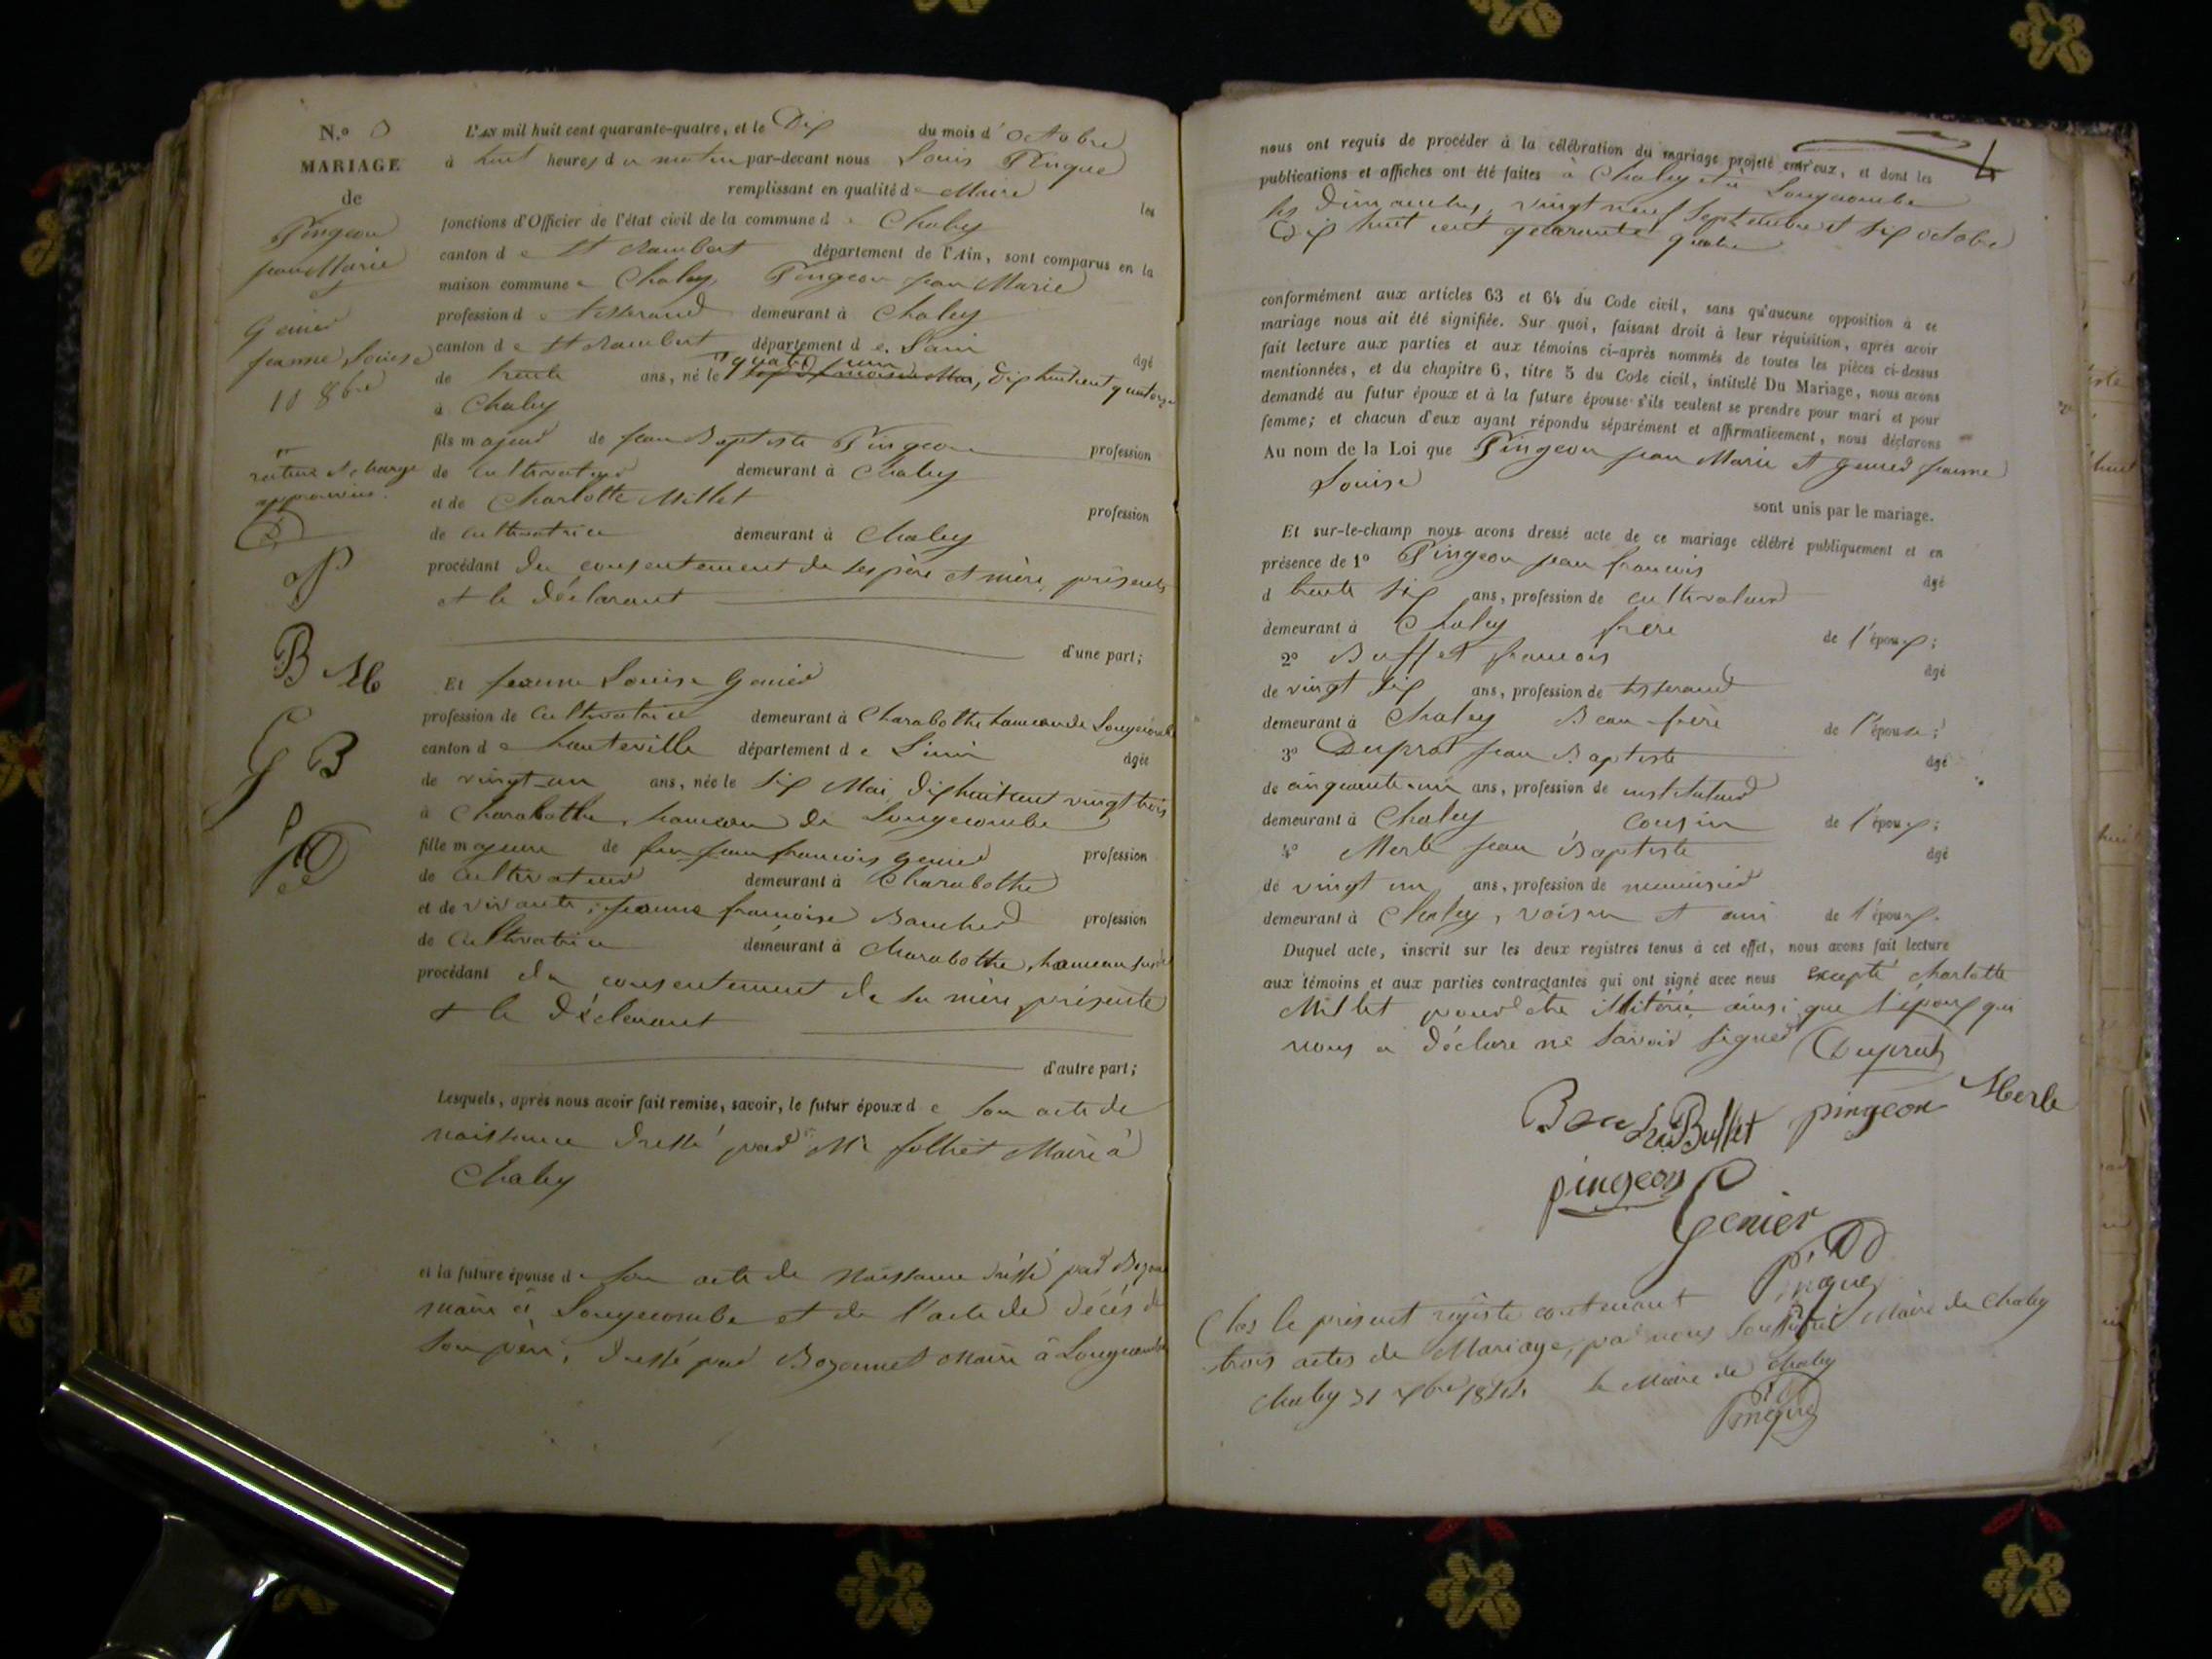 N.º 3
MARIAGE
de
Pingeon
jean Marie
et
Genier
jeanne Louise
10 8bre
rature et charge
approuvées.
P
B M
G B
P
L'AN mil huit cent quarante-quatre, et le Dix du mois d'octobre
à huit heures du matin par-devant nous Louis Pingue
remplissant en qualité de Maire les
fonctions d'Officier de l'état civil de la commune de Chaley
canton de St Rambert département de l'Ain, sont comparus en la
maison commune Chaley Pingeon jean Marie
profession de tisserand demeurant à Chaley
canton de St Rambert département de L'ain âgé
de trente ans, né le quatre juin dix huit cent quatorze
à Chaley
fils majeur de jean Baptiste Pingeon profession
de cultivateur demeurant à Chaley
et de Charlotte Millet profession
de cultivatrice demeurant à Chaley
procédant du consentement de ses père et mère, présents
et le déclarant
d'une part;
Et jeanne Louise Genier
profession de cultivatrice demeurant à Charabothe hameau de Longecombe
canton de hauteville département de L'ain âgée
de vingt-un ans, née le six Mai, dix huit cent vingt trois
à Charabothe, hameau de Longecombe
fille majeure de feu jean françois genier profession
de cultivateur demeurant à Charabothe
et de vivante; jeanne françoise Boucher profession
de cultivatrice demeurant à Charabothe, hameau susdit
procédant du consentement de sa mère, présente
et le déclarant
d'autre part;
Lesquels, après nous avoir fait remise, savoir, le futur époux de son acte de
naissance dressé par Mr folliet Maire à
Chaley
et la future épouse de son acte de naissance dressé par
maire à Longecombe et de l'acte de décès de
son père, dressé par Bozonnet Maire à Longecombe
4
nous ont requis de procéder à la célébration du mariage projeté entr'eux, et dont les
publications et affiches ont été faites à Chaley et à Longecombe
les dimanches, vingt neuf Septembre et six octobre
Dix huit cent quarante quatre
conformément aux articles 63 et 64 du Code civil, sans qu'aucune opposition à ce
mariage nous ait été signifiée. Sur quoi, faisant droit à leur réquisition, après avoir
fait lecture aux parties et aux témoins ci-après nommés de toutes les pièces ci-dessus
mentionnées, et du chapitre 6, titre 5 du Code civil, intitulé Du Mariage, nous avons
demandé au futur époux et à la future épouse s'ils veulent se prendre pour mari et pour
femme; et chacun d'eux ayant répondu séparément et affirmativement, nous déclarons
Au nom de la Loi que Pingeon jean Marie et genier jeanne
Louise
sont unis par le mariage.
Et sur-le-champ nous avons dressé acte de ce mariage célébré publiquement et en
présence de 1º Pingeon jean françois âgé
d trente six ans, profession de cultivateur
demeurant à Chaley frère de l'époux;
2º Buffet françois âgé
de vingt six ans, profession de tisserand
demeurant à Chaley Beau-frère de l'épouse;
3º Duprat jean Baptiste âgé
de cinquante-un ans, profession de instituteur
demeurant à Chaley cousin de l'époux;
4º Merle jean Baptiste âgé
de vingt un ans, profession de menuisier
demeurant à Chaley, voisin et ami de l'époux.
Duquel acte, inscrit sur les deux registres tenus à cet effet, nous avons fait lecture
aux témoins et aux parties contractantes qui ont signé avec nous excepté charlotte
Millet pour être illitérée ainsi que l'époux qui
nous a déclaré ne savoir signer Duprat
Buffet pingeon Merle
pingeon
Genier
Pingue
Clos le présent registre contenant
trois actes de Mariage, par nous soussigné Maire de Chaley
Chaley 31 Xbre 1844 le Maire de Chaley
Pingue